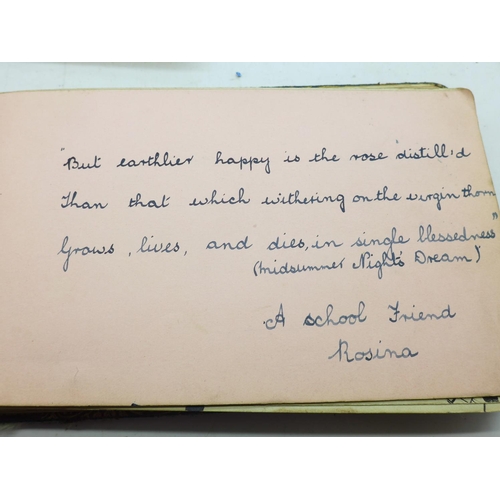 "But earthlier happy is the rose distill'd
Than that which withering on the virgin thorn
Grows, lives, and dies, in single blessedness"
(Midsummer Night's Dream)
A school Friend
Rosina